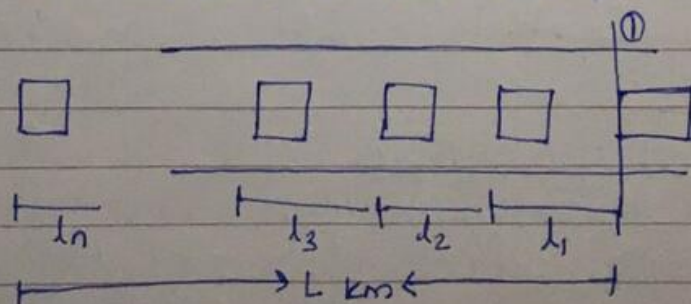 ①
ln l3 l2 l1
L km